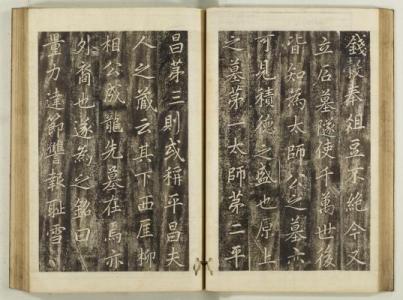 錢奉祖豆不絕今又
立石墓隧使千萬世後
皆知為太師公之墓亦
可見積德之盛也原上
之墓第一太師第二平
昌第三則或稱平昌夫
人之藏云其下西厓柳
相公成龍先墓在焉亦
外裔也遂為之銘曰
量力達節讐報耻雪